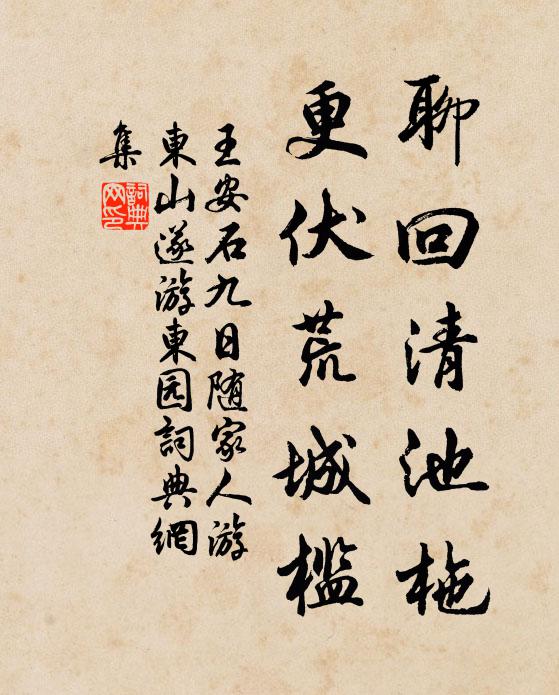 聊回清池柂
更伏荒城檻
王安石九日随家人游
東山遂游東园詞典網
集
詞典網印